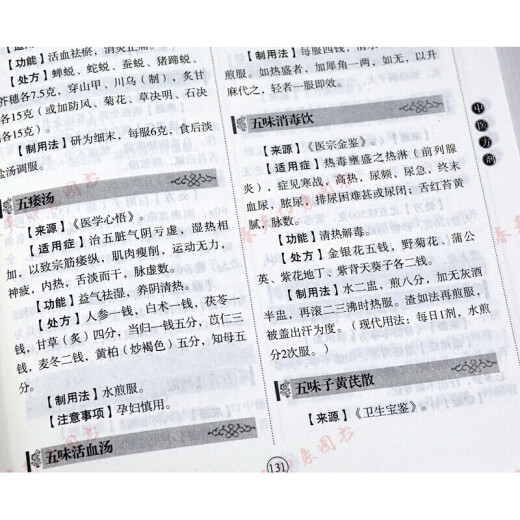 【功能】活血祛瘀，消炎止痛。
【处方】蝉蜕、蛇蜕、蚕蜕、猪蹄蜕、
芥穗各7.5克，穿山甲、川乌（制），炙甘
各15克（或加防风、菊花、草决明、石决
各15克）。
【制用法】研为细末，每服6克，食后淡
盐汤调服。
五痿汤
【来源】《医学心悟》。
【适用症】治五脏气阴亏虚，湿热相
加，以致宗筋痿纵，肌肉瘦削，运动无力，
神疲，内热，舌淡而干，脉虚数。
【功能】益气祛湿，养阴清热。
【处方】人参一钱，白术一钱，茯苓一
钱，甘草（炙）四分，当归一钱五分，苡仁三
钱，麦冬二钱，黄柏（炒褐色）五分，知母五
分。
【制用法】水煎服。
【注意事项】孕妇慎用。
五味活血汤
【制用法】每服四钱，清水
煎服。如热盛者，加犀角一两，如无，以升
麻代之，轻者一服即效。
五味消毒饮
【来源】《医宗金鉴》。
【适用症】热毒壅盛之热淋（前列腺
炎），症见寒战，高热，尿频，尿急，终末
血尿，脓尿，排尿困难甚或尿闭；舌红苔黄
腻，脉数。
【功能】清热解毒。
【处方】金银花五钱，野菊花、蒲公
英、紫花地丁、紫背天葵子各二钱。
【制用法】水二盅，煎八分，加无灰酒
半盅，再滚二三沸时热服。渣如法再煎服，
被盖出汗为度。（现代用法：每日1剂，水煎
分2次服。）
五味子黄芪散
【来源】《卫生宝鉴》。
131
中医方剂